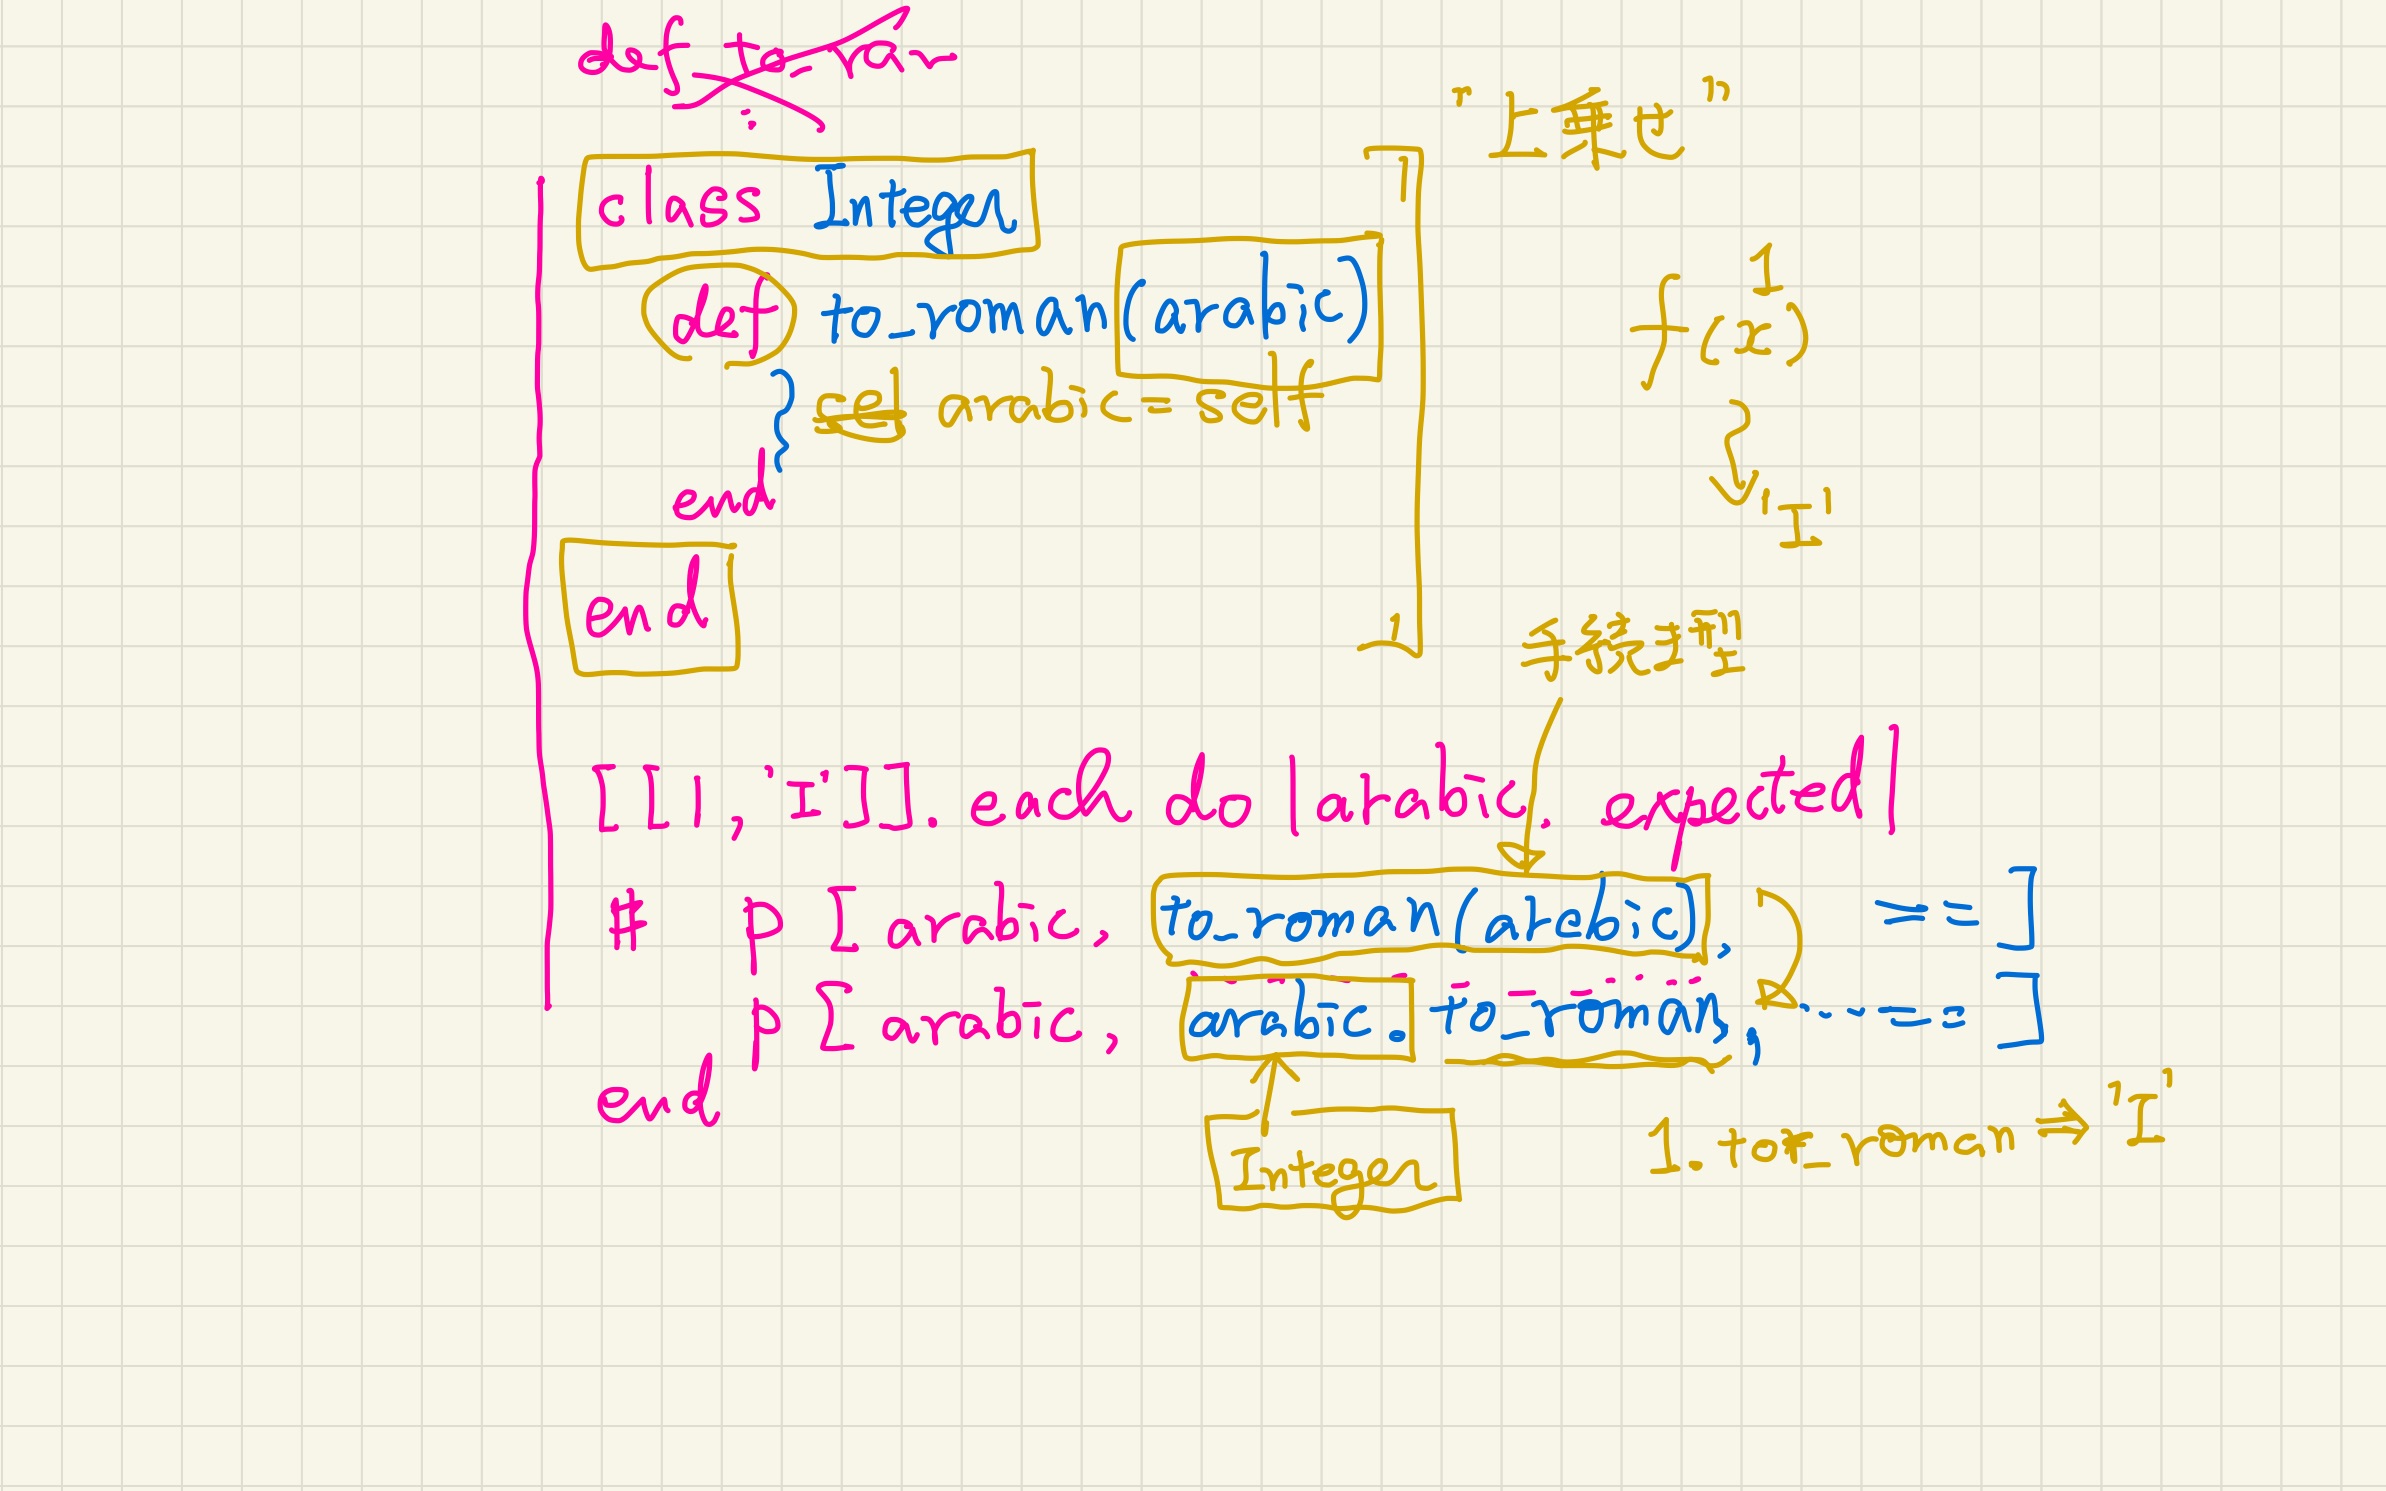 def to_ro
"上乗せ"
class Integer
1
def to_roman(arabic)
f(x)
arabic = self
end
'I'
end
手続き
[[1, 'I']].each do |arabic, expected|
# p [arabic, to_roman(arabic), ==]
p [arabic, arabic.to_roman, ==]
end
Integer
1.to_roman ⇒ 'I'